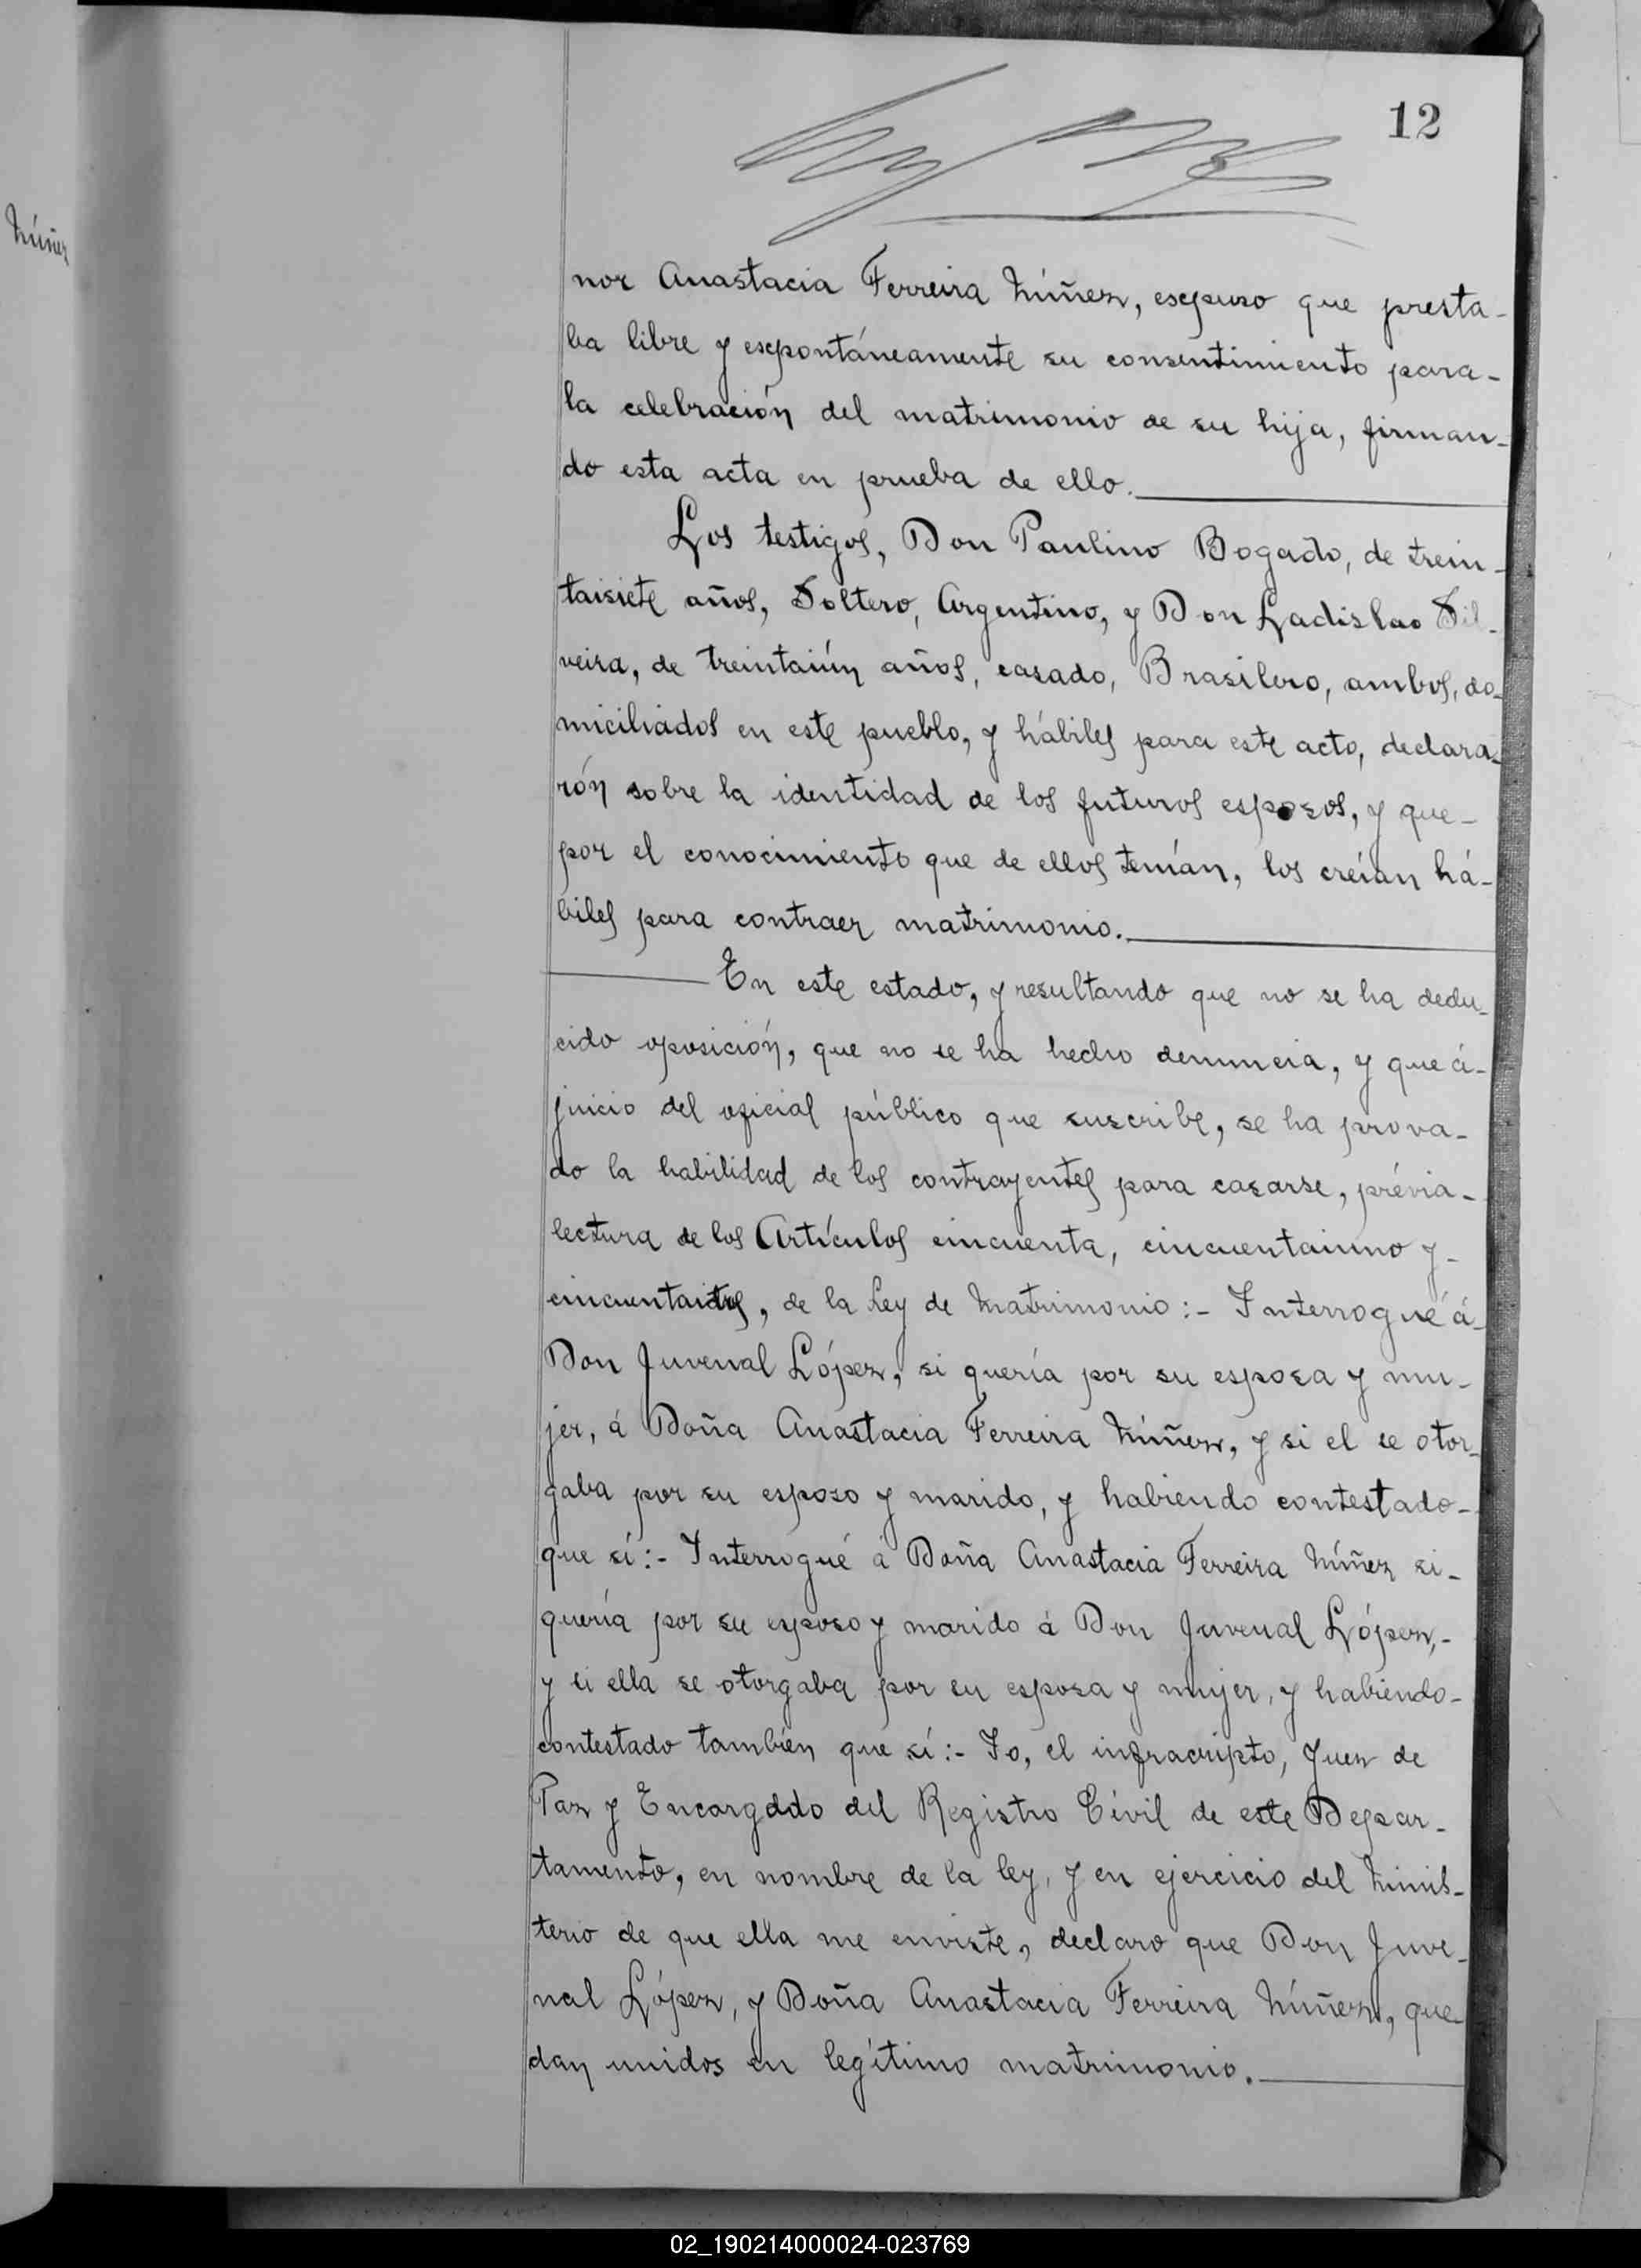 12
Núñez
nor Anastacia Ferreira Núñez, expuso que presta-
ba libre y expontáneamente su consentimiento para-
la celebración del matrimonio de su hija, firman-
do esta acta en prueba de ello.
Los testigos, Don Paulino Bogado, de trein-
taisiete años, Soltero, Argentino, y Don Ladislao Sil-
veira, de treintaiún años, casado, Brasilero, ambos, do-
miciliados en este pueblo, y hábiles para este acto, declara-
rón sobre la identidad de los futuros esposos, y que-
por el conocimiento que de ellos tenían, los creían há-
biles para contraer matrimonio.
En este estado, y resultando que no se ha dedu-
cido oposición, que no se ha hecho denuncia, y que á-
juicio del oficial público que suscribe, se ha prova-
do la habilidad de los contrayentes para casarse, prévia-
lectura de los Artículos cincuenta, cincuentaiuno y-
cincuentaidos, de la Ley de Matrimonio:- Interrogué á-
Don Juvenal López, si quería por su esposa y mu-
jer, á Doña Anastacia Ferreira Núñez, y si el se otor-
gaba por su esposo y marido, y habiendo contestado-
que sí:- Interrogué á Doña Anastacia Ferreira Núñez si-
quería por su esposo y marido á Don Juvenal López,-
y si ella se otorgaba por su esposa y mujer, y habiendo-
contestado también que sí:- Yo, el infracripto, Juez de
Paz y Encargddo del Registro Civil de este Depar-
tamento, en nombre de la ley, y en ejercicio del Minis-
terio de que ella me enviste, declaro que Don Juve-
nal López, y Doña Anastacia Ferreira Núñez, que-
dan unidos en legítimo matrimonio.
02_190214000024-023769